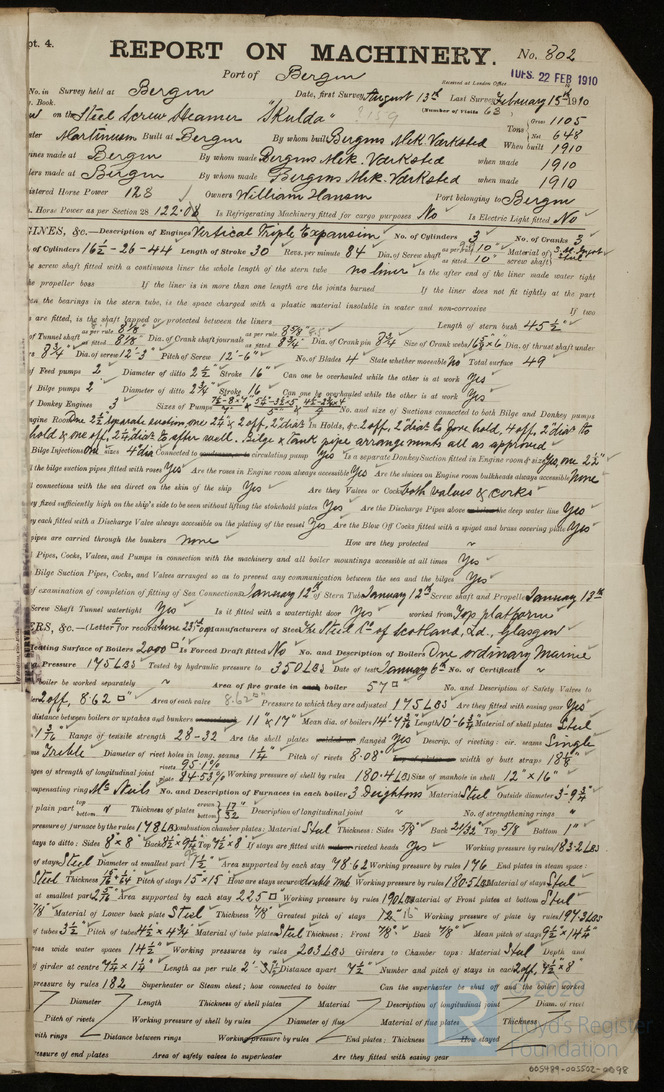 pt. 4.
REPORT ON MACHINERY. No. 802
Port of Bergen
Received at London Office TUES. 22 FEB 1910
No. in Survey held at Bergen Date, first Survey August 13th Last Survey February 15th 1910
Book. (Number of Visits 63)
on the Steel Screw Steamer "Skulda" Tons Gross 1105 Net 648
Master Martinussen Built at Bergen By whom built Bergens Mek. Værksted When built 1910
ines made at Bergen By whom made Bergens Mek. Værksted when made 1910
lers made at Bergen By whom made Bergens Mek. Værksted when made 1910
istered Horse Power 128 Owners William Hansen Port belonging to Bergen
. Horse Power as per Section 28 122.08 Is Refrigerating Machinery fitted for cargo purposes No Is Electric Light fitted No
GINES, &c.—Description of Engines Vertical Triple Expansion No. of Cylinders 3 No. of Cranks 3
of Cylinders 16½-26-44 Length of Stroke 30 Revs. per minute 84 Dia. of Screw shaft as per rule 10" as fitted 10" Material of screw shaft Steel
he screw shaft fitted with a continuous liner the whole length of the stern tube no liner Is the after end of the liner made water tight
he propeller boss If the liner is in more than one length are the joints burned If the liner does not fit tightly at the part
n the bearings in the stern tube, is the space charged with a plastic material insoluble in water and non-corrosive If two
s are fitted, is the shaft lapped or protected between the liners Length of stern bush 45½"
of Tunnel shaft as fitted 8⅞" Dia. of Crank shaft journals as fitted 8¾" Dia. of Crank pin 8¾ Size of Crank webs Dia. of thrust shaft under
8¾" Dia. of screw 12'-3" Pitch of Screw 12'-6" No. of Blades 4 State whether moveable No Total surface 49
of Feed pumps 2 Diameter of ditto 2½ Stroke 16" Can one be overhauled while the other is at work Yes
f Bilge pumps 2 Diameter of ditto 2¾ Stroke 16 Can one be overhauled while the other is at work Yes
f Donkey Engines 3 Sizes of Pumps No. and size of Suctions connected to both Bilge and Donkey pumps
ngine Room One 2½" separate suction, one 2¼ x 2 off, 2" diar In Holds, &c. 2 off, 2" diar to fore hold, 4 off, 2" diar to
hold & one off, 2¼ diar to after well. Bilge & tank pipe arrangements all as approved
Bilge Injections One sizes 4" dia Connected to circulating pump Yes Is a separate Donkey Suction fitted in Engine room & size Yes, one 2½"
l the bilge suction pipes fitted with roses Yes Are the roses in Engine room always accessible Yes Are the sluices on Engine room bulkheads always accessible None
l connections with the sea direct on the skin of the ship Yes Are they Valves or Cocks both valves & corks
y fixed sufficiently high on the ship's side to be seen without lifting the stokehold plates Yes Are the Discharge Pipes above the deep water line Yes
y each fitted with a Discharge Valve always accessible on the plating of the vessel Yes Are the Blow Off Cocks fitted with a spigot and brass covering plate Yes
pipes are carried through the bunkers none How are they protected ~
l Pipes, Cocks, Valves, and Pumps in connection with the machinery and all boiler mountings accessible at all times Yes
Bilge Suction Pipes, Cocks, and Valves arranged so as to prevent any communication between the sea and the bilges Yes
of examination of completion of fitting of Sea Connections January 12th of Stern Tube January 12th Screw shaft and Propeller January 13th
Screw Shaft Tunnel watertight Yes Is it fitted with a watertight door Yes worked from Top platform
ERS, &c.—(Letter for record Manufacturers of Steel The Steel Co. of Scotland, Ld., Glasgow
Heating Surface of Boilers 2000 □' Is Forced Draft fitted No No. and Description of Boilers One ordinary Marine
Pressure 175 LBS Tested by hydraulic pressure to 350 LBS Date of test January 6th No. of Certificate ~
boiler be worked separately ~ Area of fire grate in each boiler 57 □ No. and Description of Safety Valves to
iler 2 off, 8.62 □" Area of each valve 8.62 □" Pressure to which they are adjusted 175 LBS Are they fitted with easing gear Yes
distance between boilers or uptakes and bunkers 11" x 17" Mean dia. of boilers 14'-7½" Length 10'-6¾" Material of shell plates Steel
1 3/16 Range of tensile strength 28-32 Are the shell plates flanged Yes Descrip. of riveting: cir. seams Single
ms Treble Diameter of rivet holes in long. seams 1¼" Pitch of rivets 8.08" width of butt straps 18⅞"
ages of strength of longitudinal joint rivets 95.1% plate 84.53% Working pressure of shell by rules 180.4 LBS Size of manhole in shell 12" x 16"
mpensating ring Mc Neils No. and Description of Furnaces in each boiler 3 Deightons Material Steel Outside diameter 3'-9¾"
plain part top bottom Thickness of plates crown bottom 17/32" Description of longitudinal joint ~ No. of strengthening rings ~
pressure of furnace by the rules 178 LBS Combustion chamber plates: Material Steel Thickness: Sides 5/8" Back 21/32 Top 5/8 Bottom 1"
stays to ditto: Sides 8" x 8" Top 7½ x 8" If stays are fitted with nuts or riveted heads Yes Working pressure by rules 183.2 LBS
of stays Steel Diameter at smallest part 1½" Area supported by each stay 78.62 Working pressure by rules 176 End plates in steam space:
Steel Pitch of stays 15" x 15" How are stays secured double nuts Working pressure by rules 180.5 LBS Material of stays Steel
at smallest part 2 9/16" Area supported by each stay 225 □ Working pressure by rules 190 LBS Material of Front plates at bottom Steel
7/8" Material of Lower back plate Steel Thickness 7/8" Greatest pitch of stays 12" Working pressure of plate by rules 197.3 LBS
of tubes 3½ Pitch of tubes 4½ x 4¾ Material of tube plates Steel Thickness: Front 7/8" Back 7/8" Mean pitch of stays 9½ x 14¼"
oss wide water spaces 14½" Working pressures by rules 203 LBS Girders to Chamber tops: Material Steel Depth and
of girder at centre 7¾ x 1¼" Length as per rule Distance apart 7½" Number and pitch of stays in each 2 off, 7½ x 8"
pressure by rules 182 Superheater or Steam chest; how connected to boiler Can the superheater be shut off and the boiler worked
Diameter Length Thickness of shell plates Material Description of longitudinal joint Diam. of rivet
Pitch of rivets Working pressure of shell by rules Diameter of flue Material of flue plates Thickness
with rings Distance between rings Working pressure by rules End plates: Thickness How stayed
ressure of end plates Area of safety valves to superheater Are they fitted with easing gear
© 2020
Lloyd's Register
Foundation
005489-005502-0098